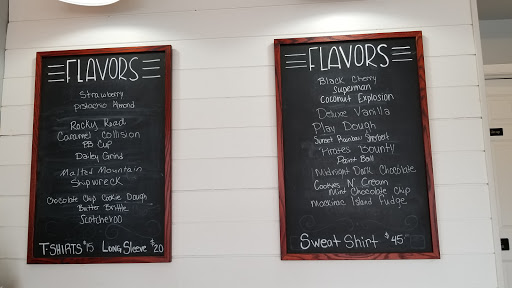 FLAVORS
Strawberry
Pistachio Almond
Rocky Road
Caramel Collision
PB Cup
Daily Grind
Malted Mountain
Shipwreck
Chocolate Chip Cookie Dough
Butter Brittle
Scotcheroo
T-SHIRTS $15 LONG SLEEVE $20
FLAVORS
Black Cherry
Superman
Coconut Explosion
Deluxe Vanilla
Play Dough
Sunset Rainbow Sherbet
Pirates Bounty
Paint Ball
Midnight Dark Chocolate
Cookies N' Cream
Mint Chocolate Chip
Mackinac Island Fudge
SWEAT SHIRT $45